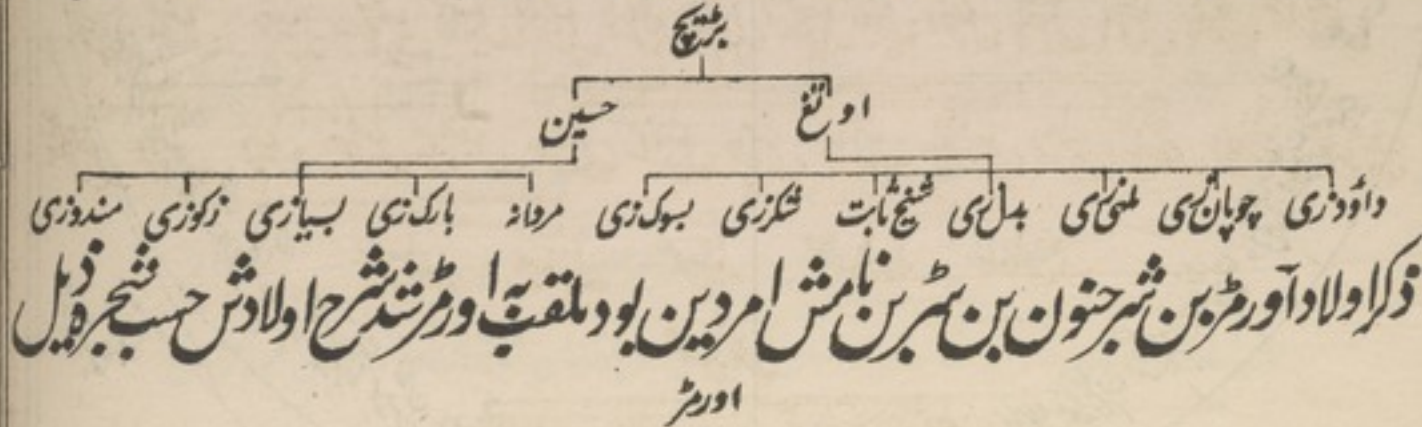 بڑیچ
اوتغ حسین
داؤدزی چوپان‌زی ملمنی‌زی بدل‌زی شیخ ثابت شکرزی بسوک‌زی مردانہ بارک‌زی بسیازی زکوزی مندوزی
ذکر اولاد آورمڑ بن شرجنون بن سڑبن نامش امردین بود ملقب بہ اورمڑ شد شرح اولادش حسب شجرہ ذیل
اورمڑ